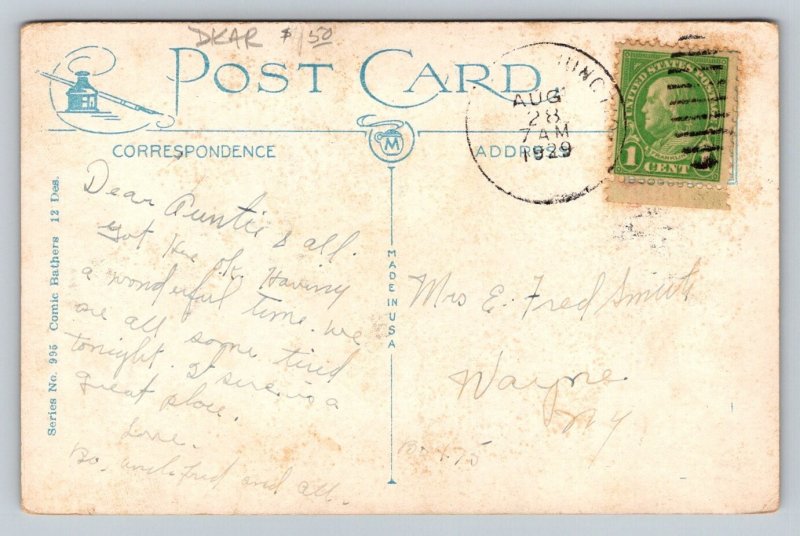 DKAR $1.50
POST CARD
CORRESPONDENCE
ADDRESS
M
AUG
28
7 AM
1929
UNITED STATES POSTAGE
FRANKLIN
1 CENT 1
Series No. 995 Comic Bathers 12 Des.
MADE IN USA
Dear Auntie & all.
Got here O.K. Having
a wonderful time. We
are all some tired
tonight. It sure is a
great place.
Love.
and all.
Mrs E. Fred Smith
Wayne
NY